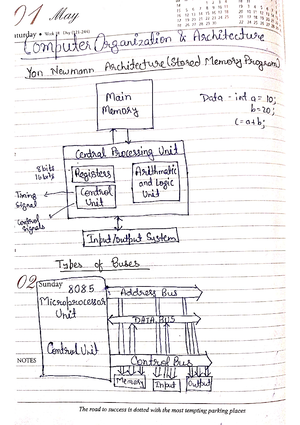 01 May
Saturday
Computer Organization & Architecture
Von Newmann Architecture (Stored Memory Program)
Main
Memory
Data - int a = 10;
b = 20;
c = a+b;
Central Processing Unit
8 bits
16 bits
Registers
Control
Unit
Arithmatic
and Logic
Unit
Timing
Signal
Control
Signals
Input/Output System
Types of Buses
02 Sunday
8085
Microprocessor
Unit
Control Unit
Address Bus
DATA BUS
Control Bus
Memory
Input
Output
NOTES
The road to success is dotted with the most tempting parking places